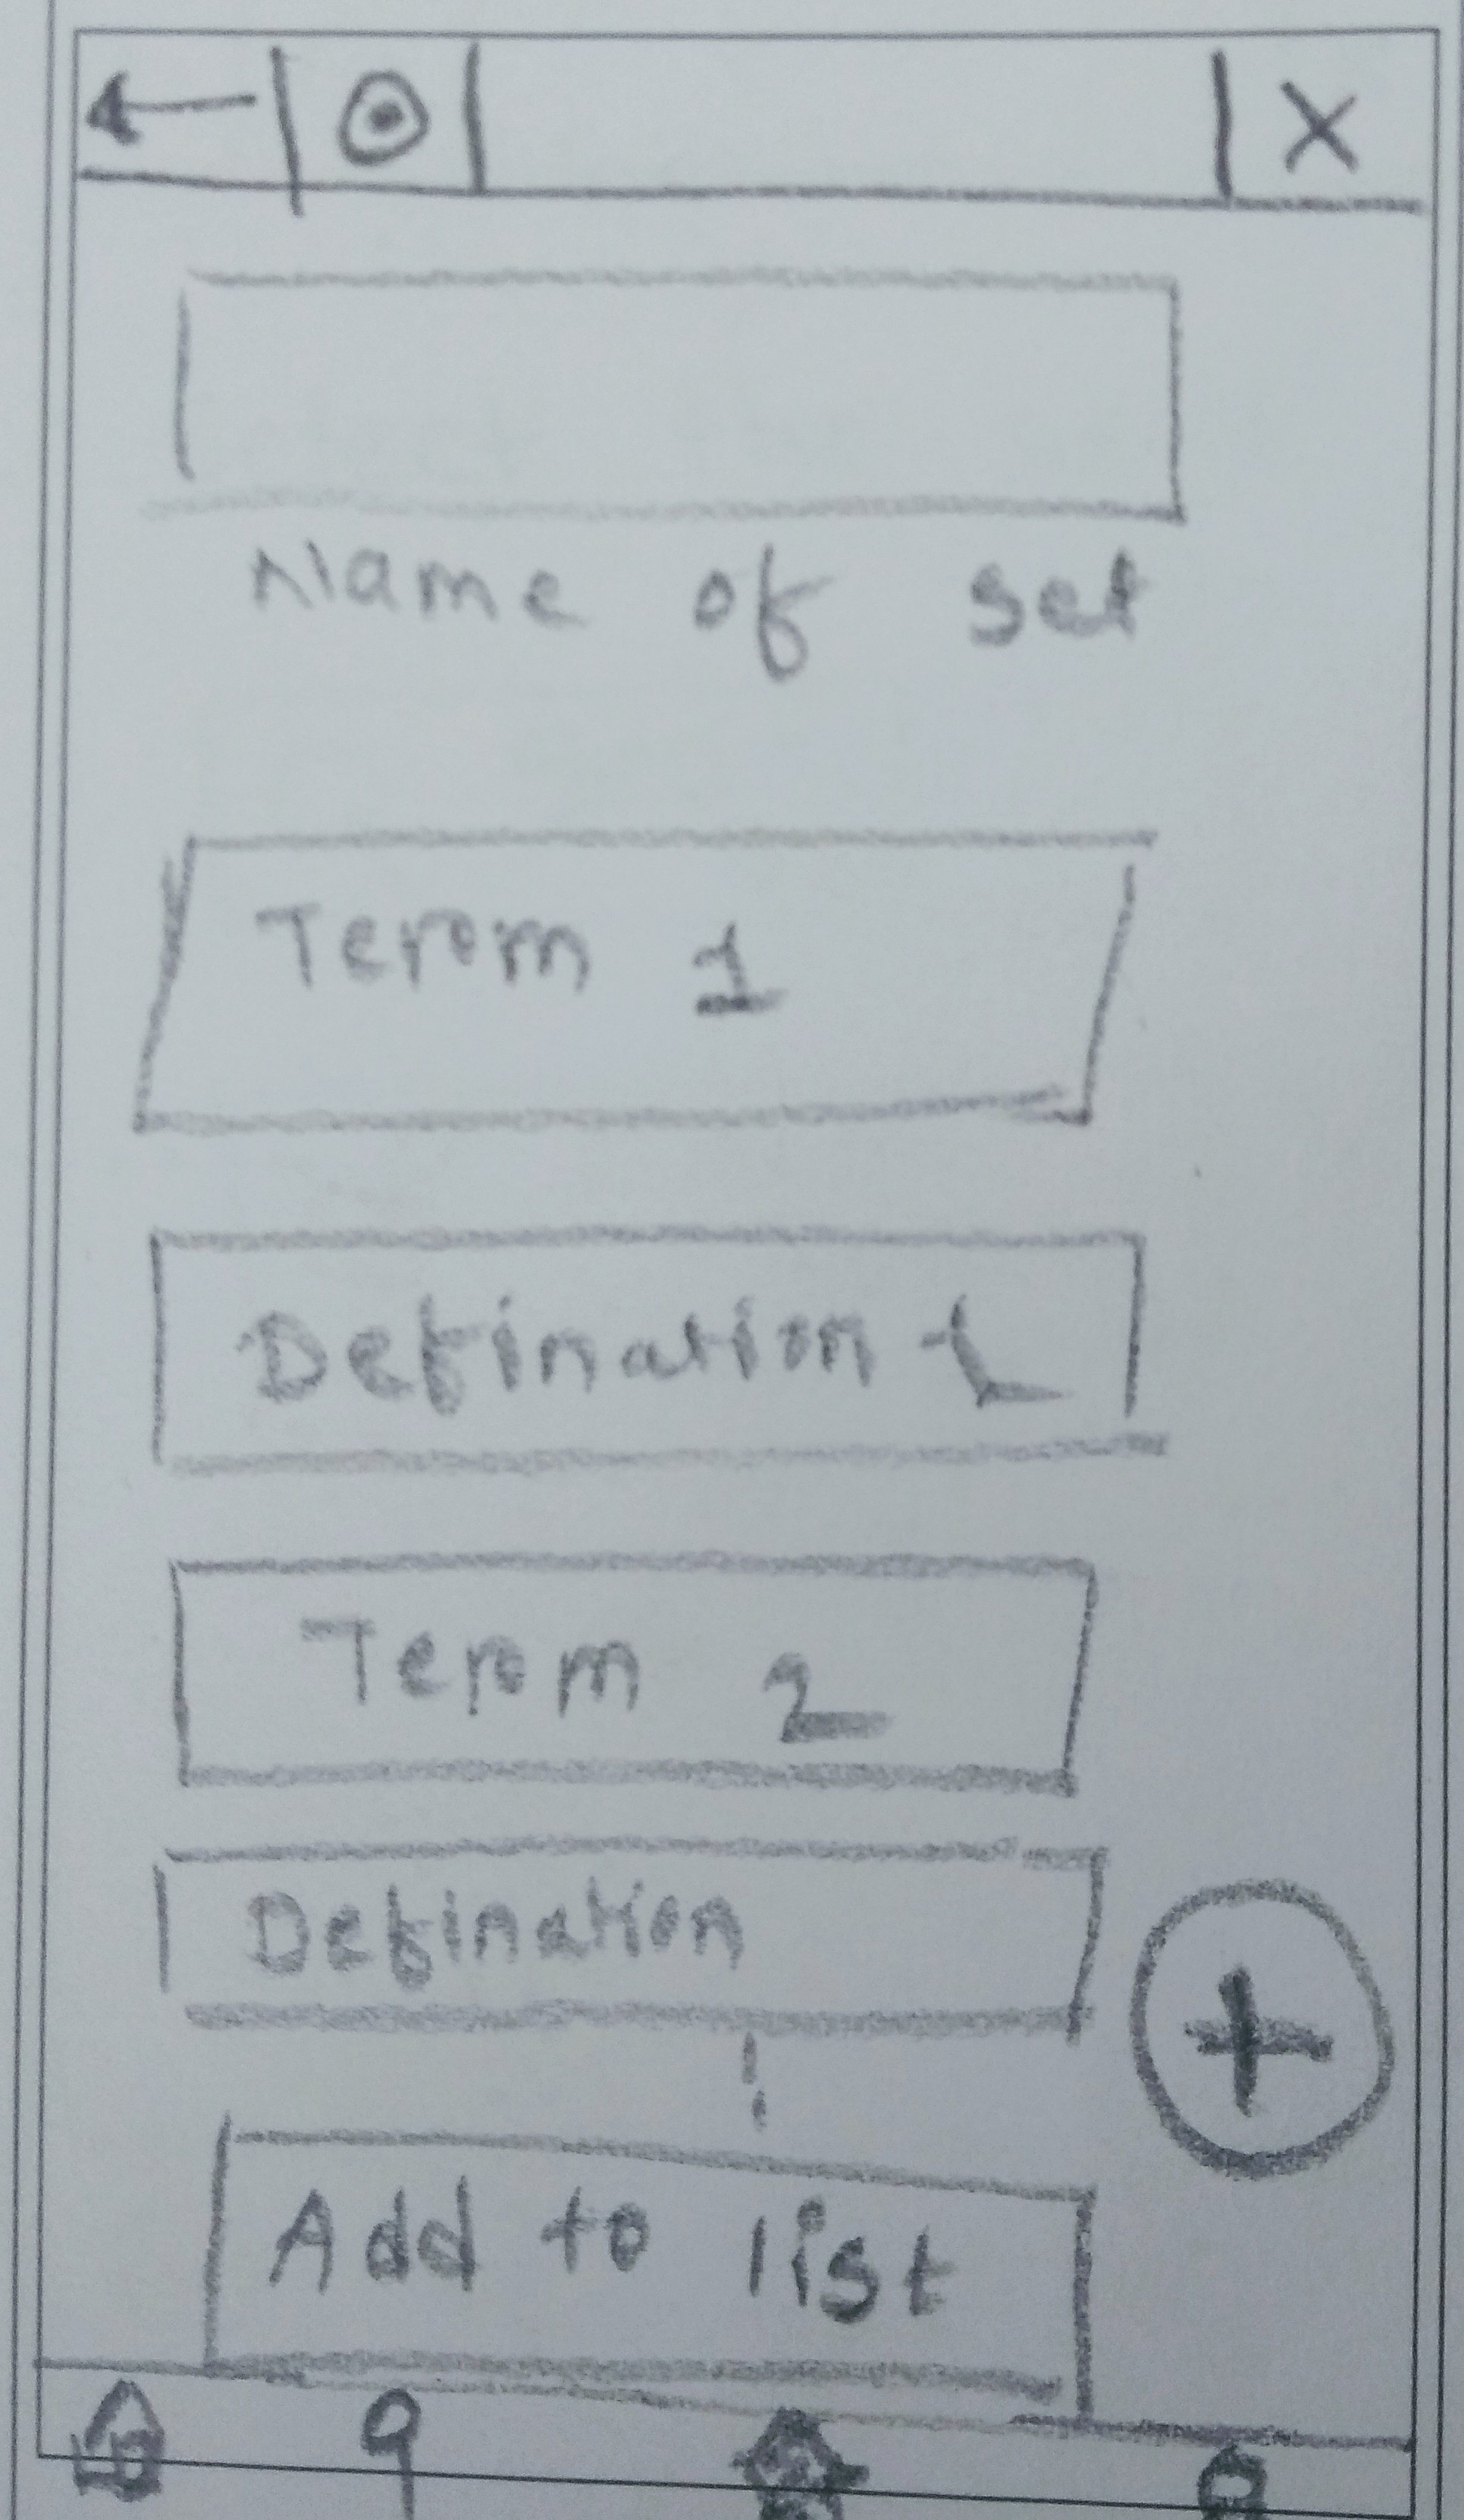 Name of set
Term 1
Defination 1
Term 2
Defination
Add to list